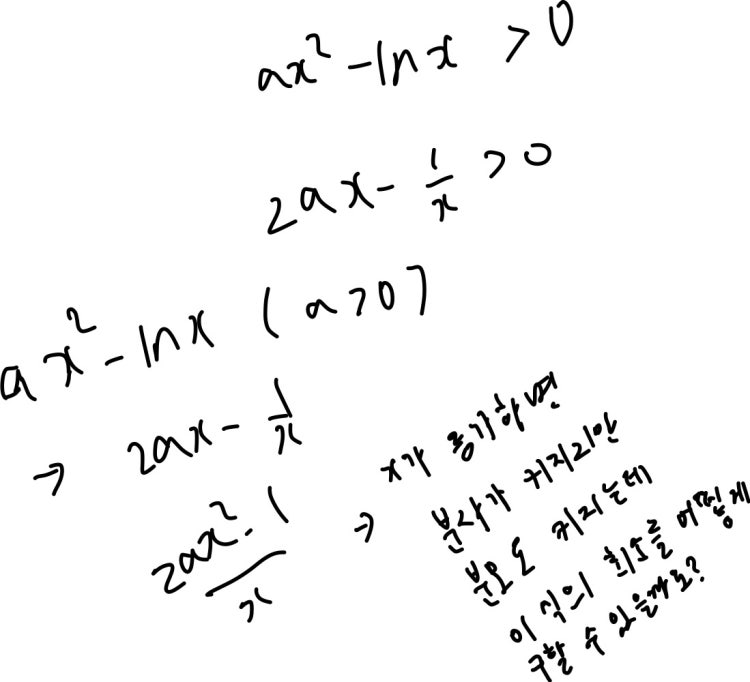 ax² - lnx > 0
2ax - 1/x > 0
ax² - lnx (a>0)
→ 2ax - 1/x
(2ax² - 1)/x → x가 증가하면
분자가 커지지만
분모도 커지는데
이 식의 최소를 어떻게
구할 수 있을까요?